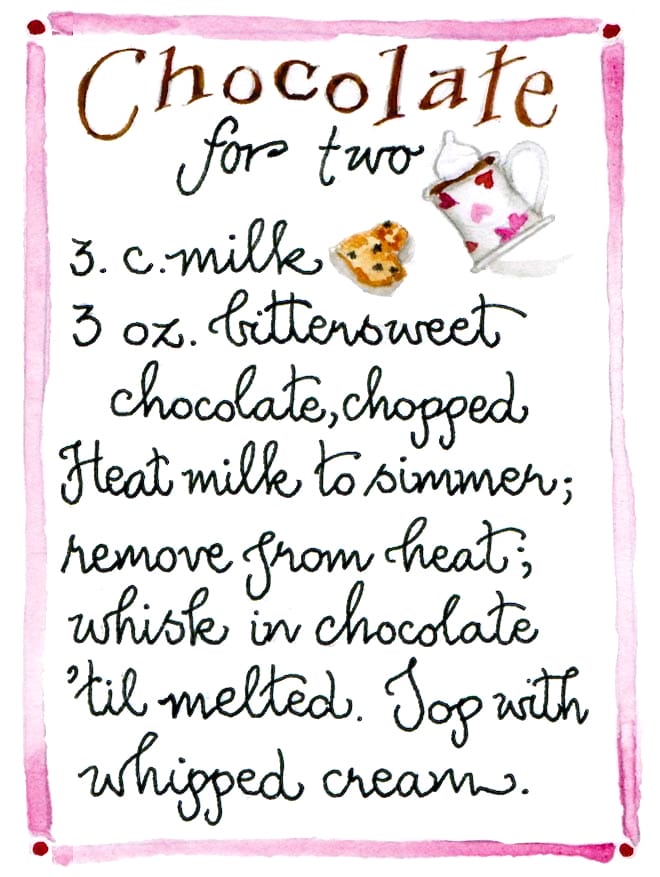 Chocolate
for two
3. c. milk
3 oz. bittersweet
chocolate, chopped
Heat milk to simmer;
remove from heat;
whisk in chocolate
'til melted. Top with
whipped cream.